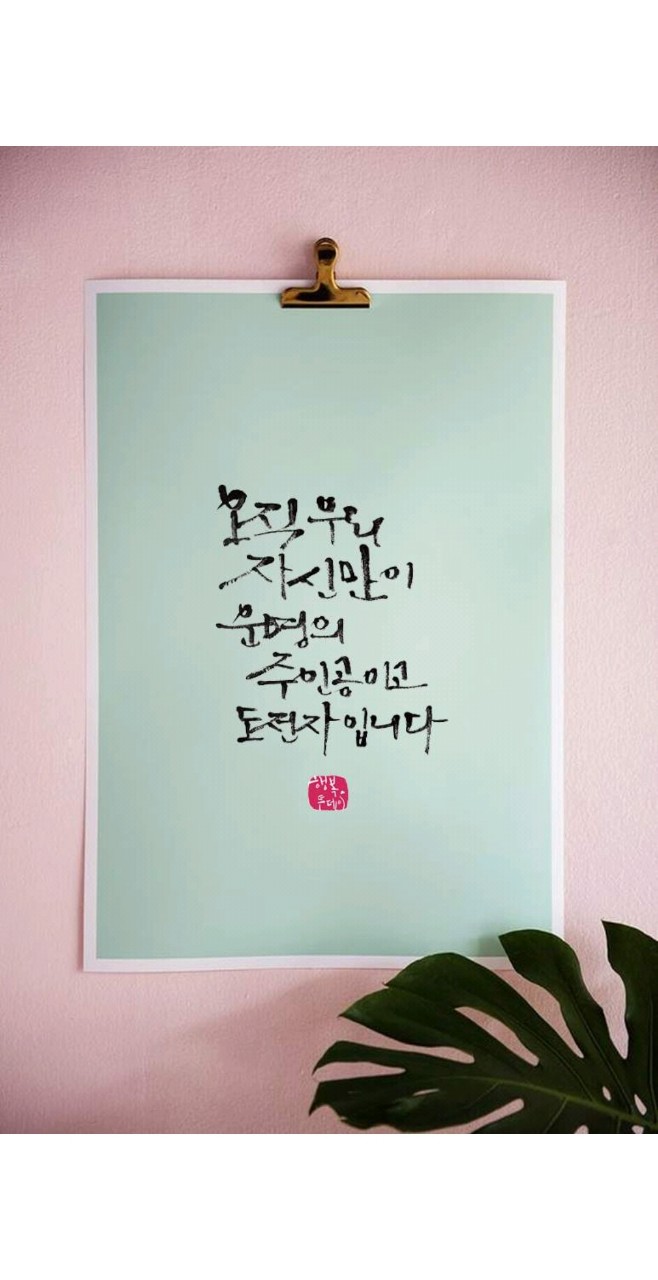 오직 우리
자신만이
운명의
주인공이고
도전자입니다
행복.
투데이